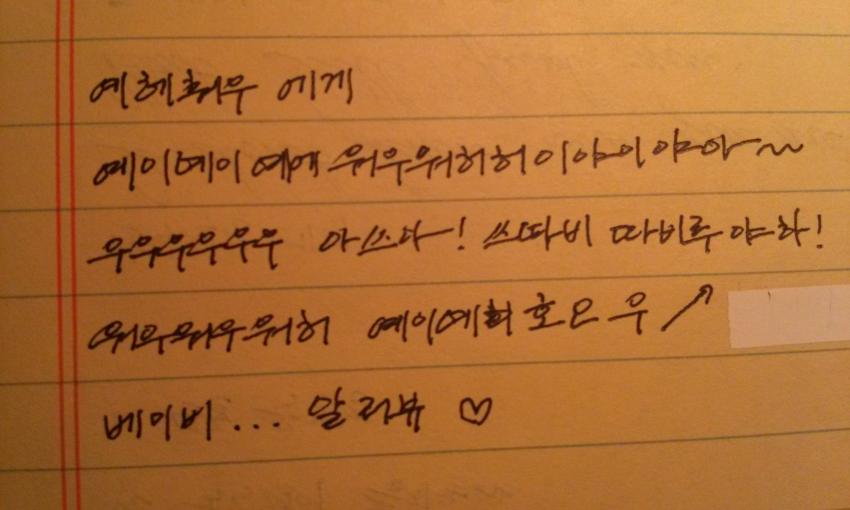 예헤훠우 에게
예이예이 예예 워우워허허이야이야아~
우우우우우우 아쓰아! 쓰따비 따비루야하!
워우워우워허 예이예희호오우↗
베이비... 알러뷰 ♡